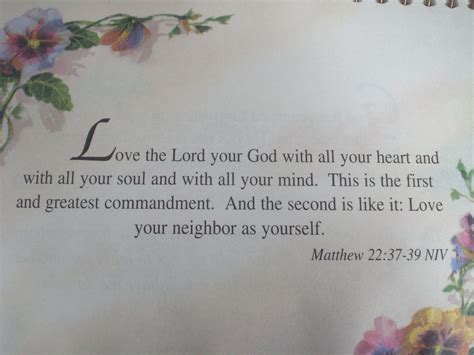 Love the Lord your God with all your heart and
with all your soul and with all your mind.  This is the first
and greatest commandment.  And the second is like it: Love
your neighbor as yourself.
Matthew 22:37-39 NIV